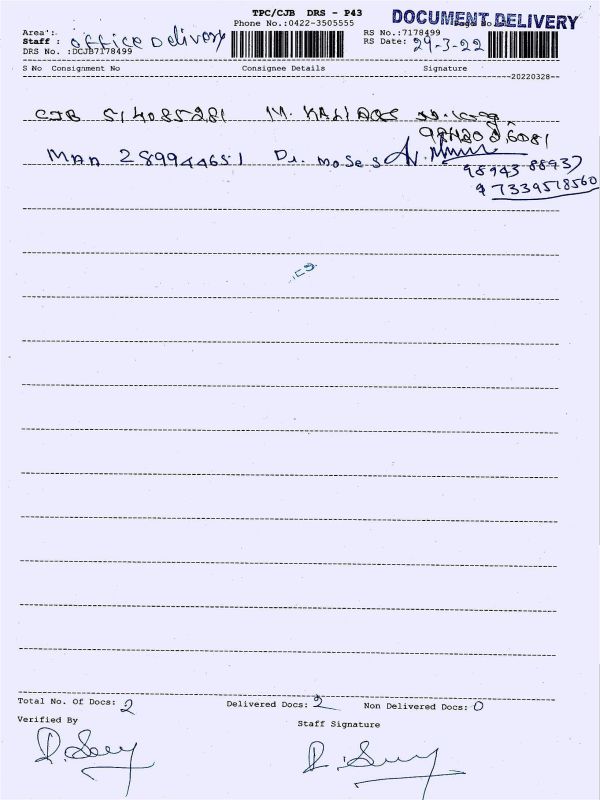 TPC/CJB DRS - P43
DOCUMENT DELIVERY
Phone No.:0422-3505555
Area :
RS No.:7178499
Staff : office Delivery
RS Date: 29-3-22
DRS No. :DCJB7178499
S No Consignment No Consignee Details Signature
20220328
CJB 514085281 M. KALI
MAA 289944651 Dr. Moses
98943 88937
97339518560
Total No. Of Docs: 2 Delivered Docs: 2 Non Delivered Docs: 0
Verified By Staff Signature